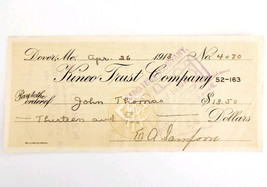 Dover, Me. Apr. 26 1918 No. 4070
Kineo Trust Company 52-163
Pay to the order of John Thomas $13.50
Thirteen and Dollars